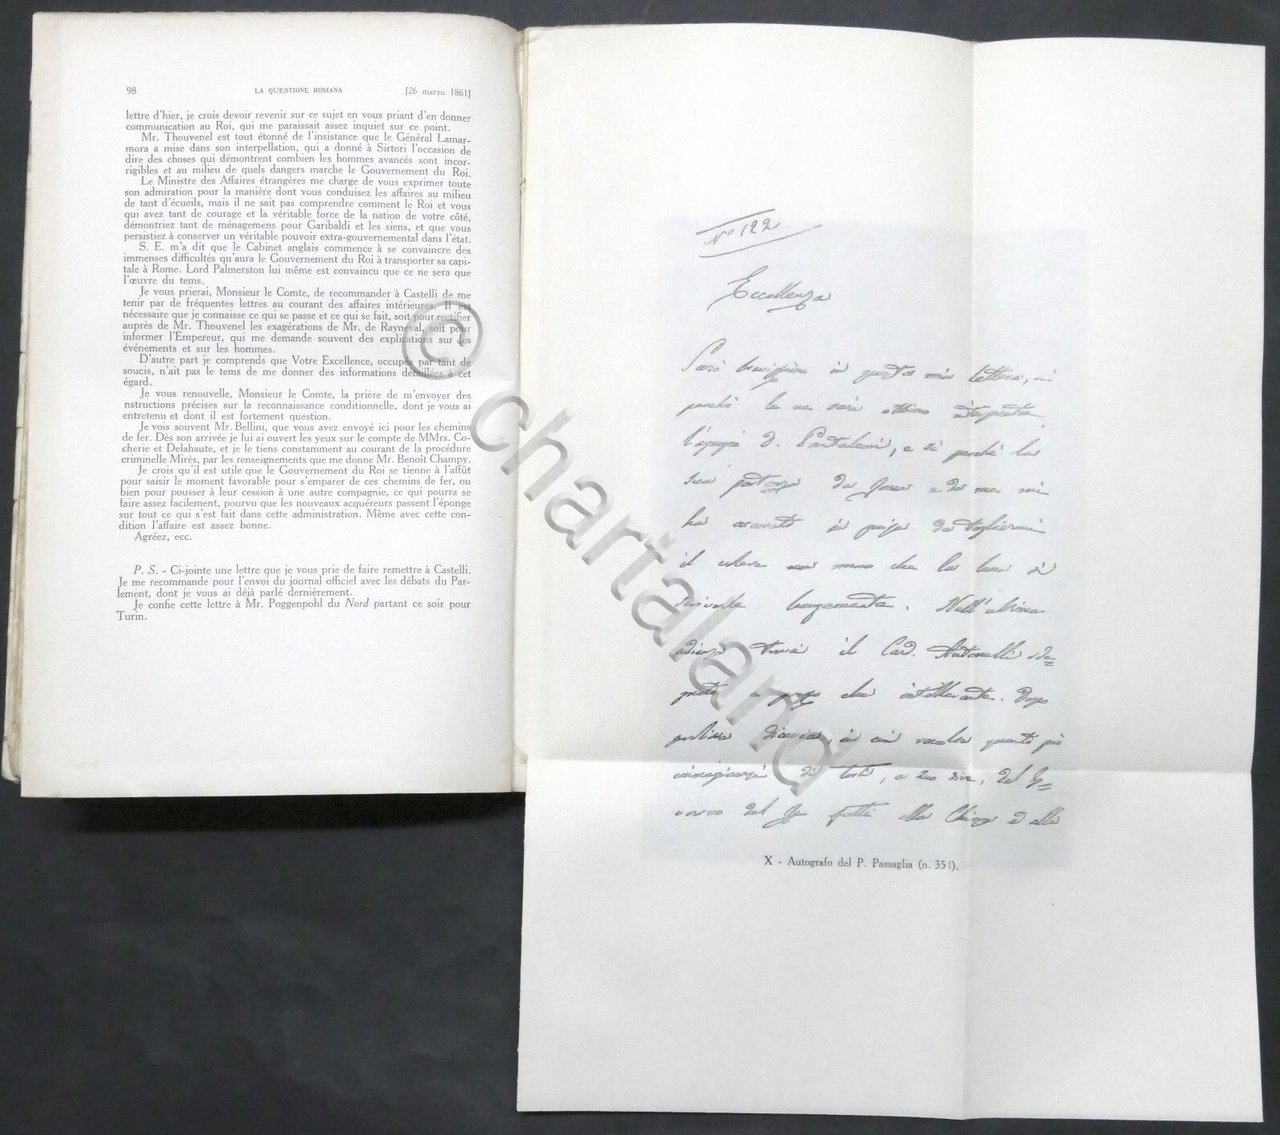 98 LA QUESTIONE ROMANA [26 marzo 1861]
lettre d'hier, je crois devoir revenir sur ce sujet en vous priant d'en donner
communication au Roi, qui me paraissait assez inquiet sur ce point.
Mr. Thouvenel est tout étonné de l'insistance que le Général Lamar-
mora a mise dans son interpellation, qui a donné à Sirtori l'occasion de
dire des choses qui démontrent combien les hommes avancés sont incor-
rigibles et au milieu de quels dangers marche le Gouvernement du Roi.
Le Ministre des Affaires étrangères me charge de vous exprimer toute
son admiration pour la manière dont vous conduisez les affaires au milieu
de tant d'écueils, mais il ne sait pas comprendre comment le Roi et vous
qui avez tant de courage et la véritable force de la nation de votre côté,
démontriez tant de ménagemens pour Garibaldi et les siens, et que vous
persistiez à conserver un véritable pouvoir extra-gouvernemental dans l'état.
S. E. m'a dit que le Cabinet anglais commence à se convaincre des
immenses difficultés qu'aura le Gouvernement du Roi à transporter sa capi-
tale à Rome. Lord Palmerston lui même est convaincu que ce ne sera que
l'œuvre du tems.
Je vous prierai, Monsieur le Comte, de recommander à Castelli de me
tenir par de fréquentes lettres au courant des affaires intérieures. Il est
nécessaire que je connaisse ce qui se passe et ce qui se fait, soit pour rectifier
auprés de Mr. Thouvenel les exagérations de Mr. de Rayneval, soit pour
informer l'Empereur, qui me demande souvent des explications sur les
événements et sur les hommes.
D'autre part je comprends que Votre Excellence, occupée par tant de
soucis, n'ait pas le tems de me donner des informations détaillées à cet
égard.
Je vous renouvelle, Monsieur le Comte, la prière de m'envoyer des
nstructions précises sur la reconnaissance conditionnelle, dont je vous ai
entretenu et dont il est fortement question.
Je vois souvent Mr. Bellini, que vous avez envoyé ici pour les chemins
de fer. Dès son arrivée je lui ai ouvert les yeux sur le compte de MMrs. Co-
cherie et Delahaute, et je le tiens constamment au courant de la procédure
criminelle Mirès, par les renseignements que me donne Mr. Benoît Champy.
Je crois qu'il est utile que le Gouvernement du Roi se tienne à l'affût
pour saisir le moment favorable pour s'emparer de ces chemins de fer, ou
bien pour pousser à leur cession à une autre compagnie, ce qui pourra se
faire assez facilement, pourvu que les nouveaux acquéreurs passent l'éponge
sur tout ce qui s'est fait dans cette administration. Même avec cette con-
dition l'affaire est assez bonne.
Agréez, ecc.
P. S. - Ci-jointe une lettre que je vous prie de faire remettre à Castelli.
Je me recommande pour l'envoi du journal officiel avec les débats du Par-
lement, dont je vous ai déjà parlé dernièrement.
Je confie cette lettre à Mr. Poggenpohl du Nord partant ce soir pour
Turin.
Nº 122
Eccellenza
Sarò brevissimo in questa mia lettera, sì
perchè la ne sarà ottimo interprete
l'egregio D. Pantaleoni, e sì perchè la
sua partenza da Roma e da me mi
ha
il non meno che la lena di
scriverle lungamente. Nell'ultima
udienza trovai il Card. Antonelli
Dopo
quanto può
immaginarsi di torti, a suo dire, del Go=
verno del Re fatti alla Chiesa e alla
X - Autografo del P. Passaglia (n. 351).
© chartaland